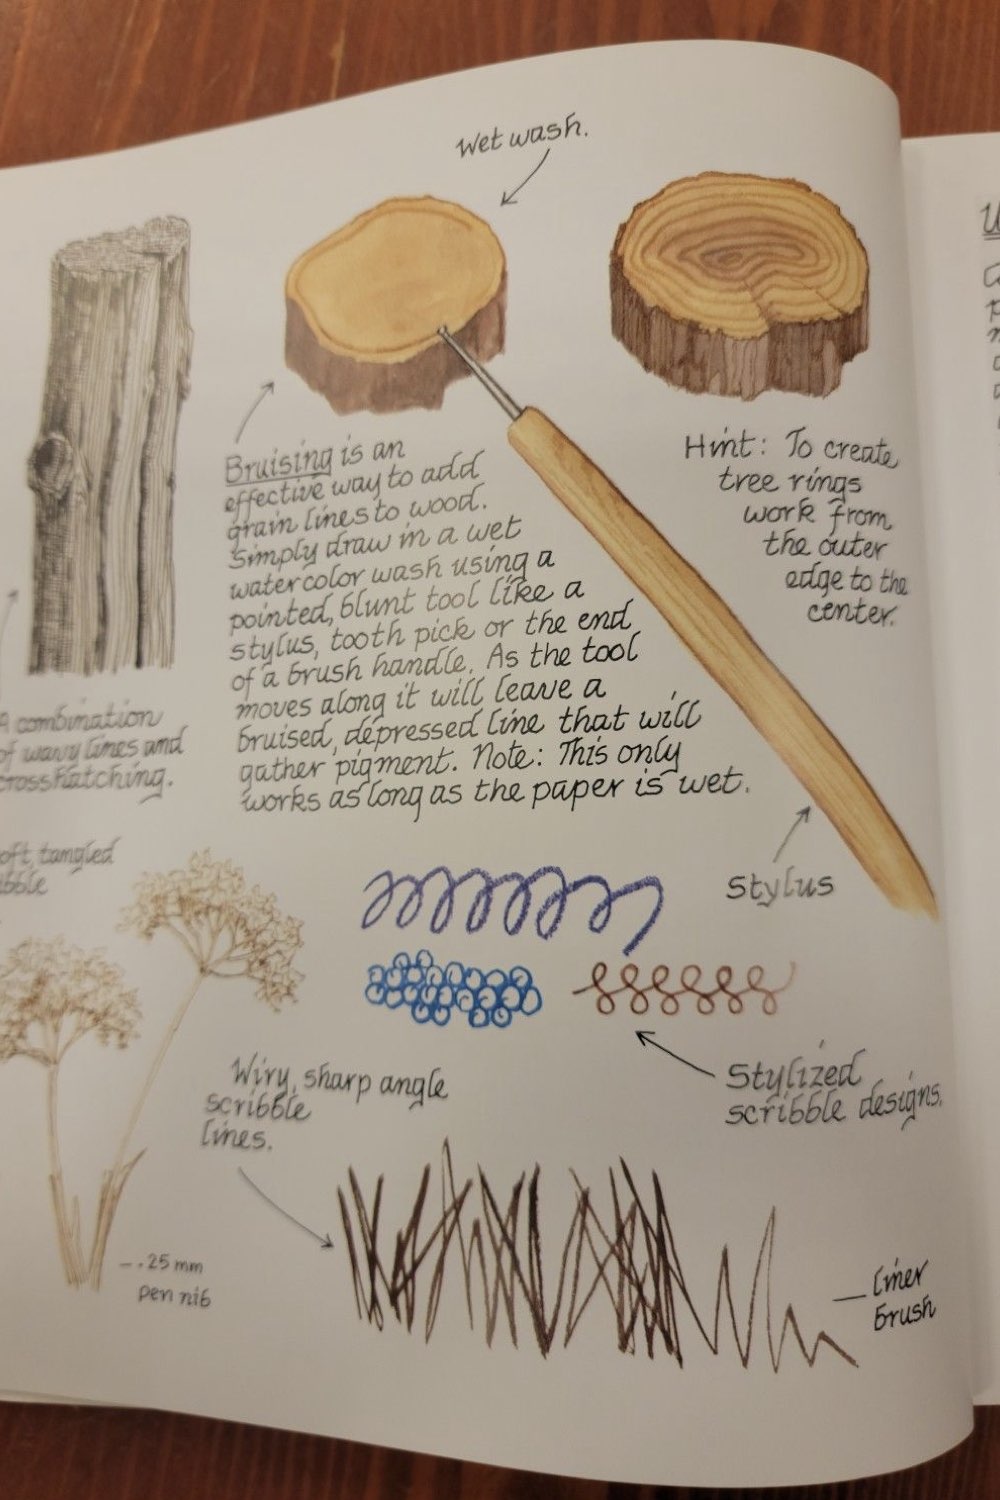 Wet wash.
Bruising is an
effective way to add
grain lines to wood.
Simply draw in a wet
watercolor wash using a
pointed, blunt tool like a
stylus, tooth pick or the end
of a brush handle. As the tool
moves along it will leave a
bruised, depressed line that will
gather pigment. Note: This only
works as long as the paper is wet.
Hint: To create
tree rings
work from
the outer
edge to the
center.
A combination
of wavy lines and
crosshatching.
Stylus
tangled
Stylized
scribble designs.
Wiry, sharp angle
scribble
lines.
.25 mm
pen nib
Liner
brush